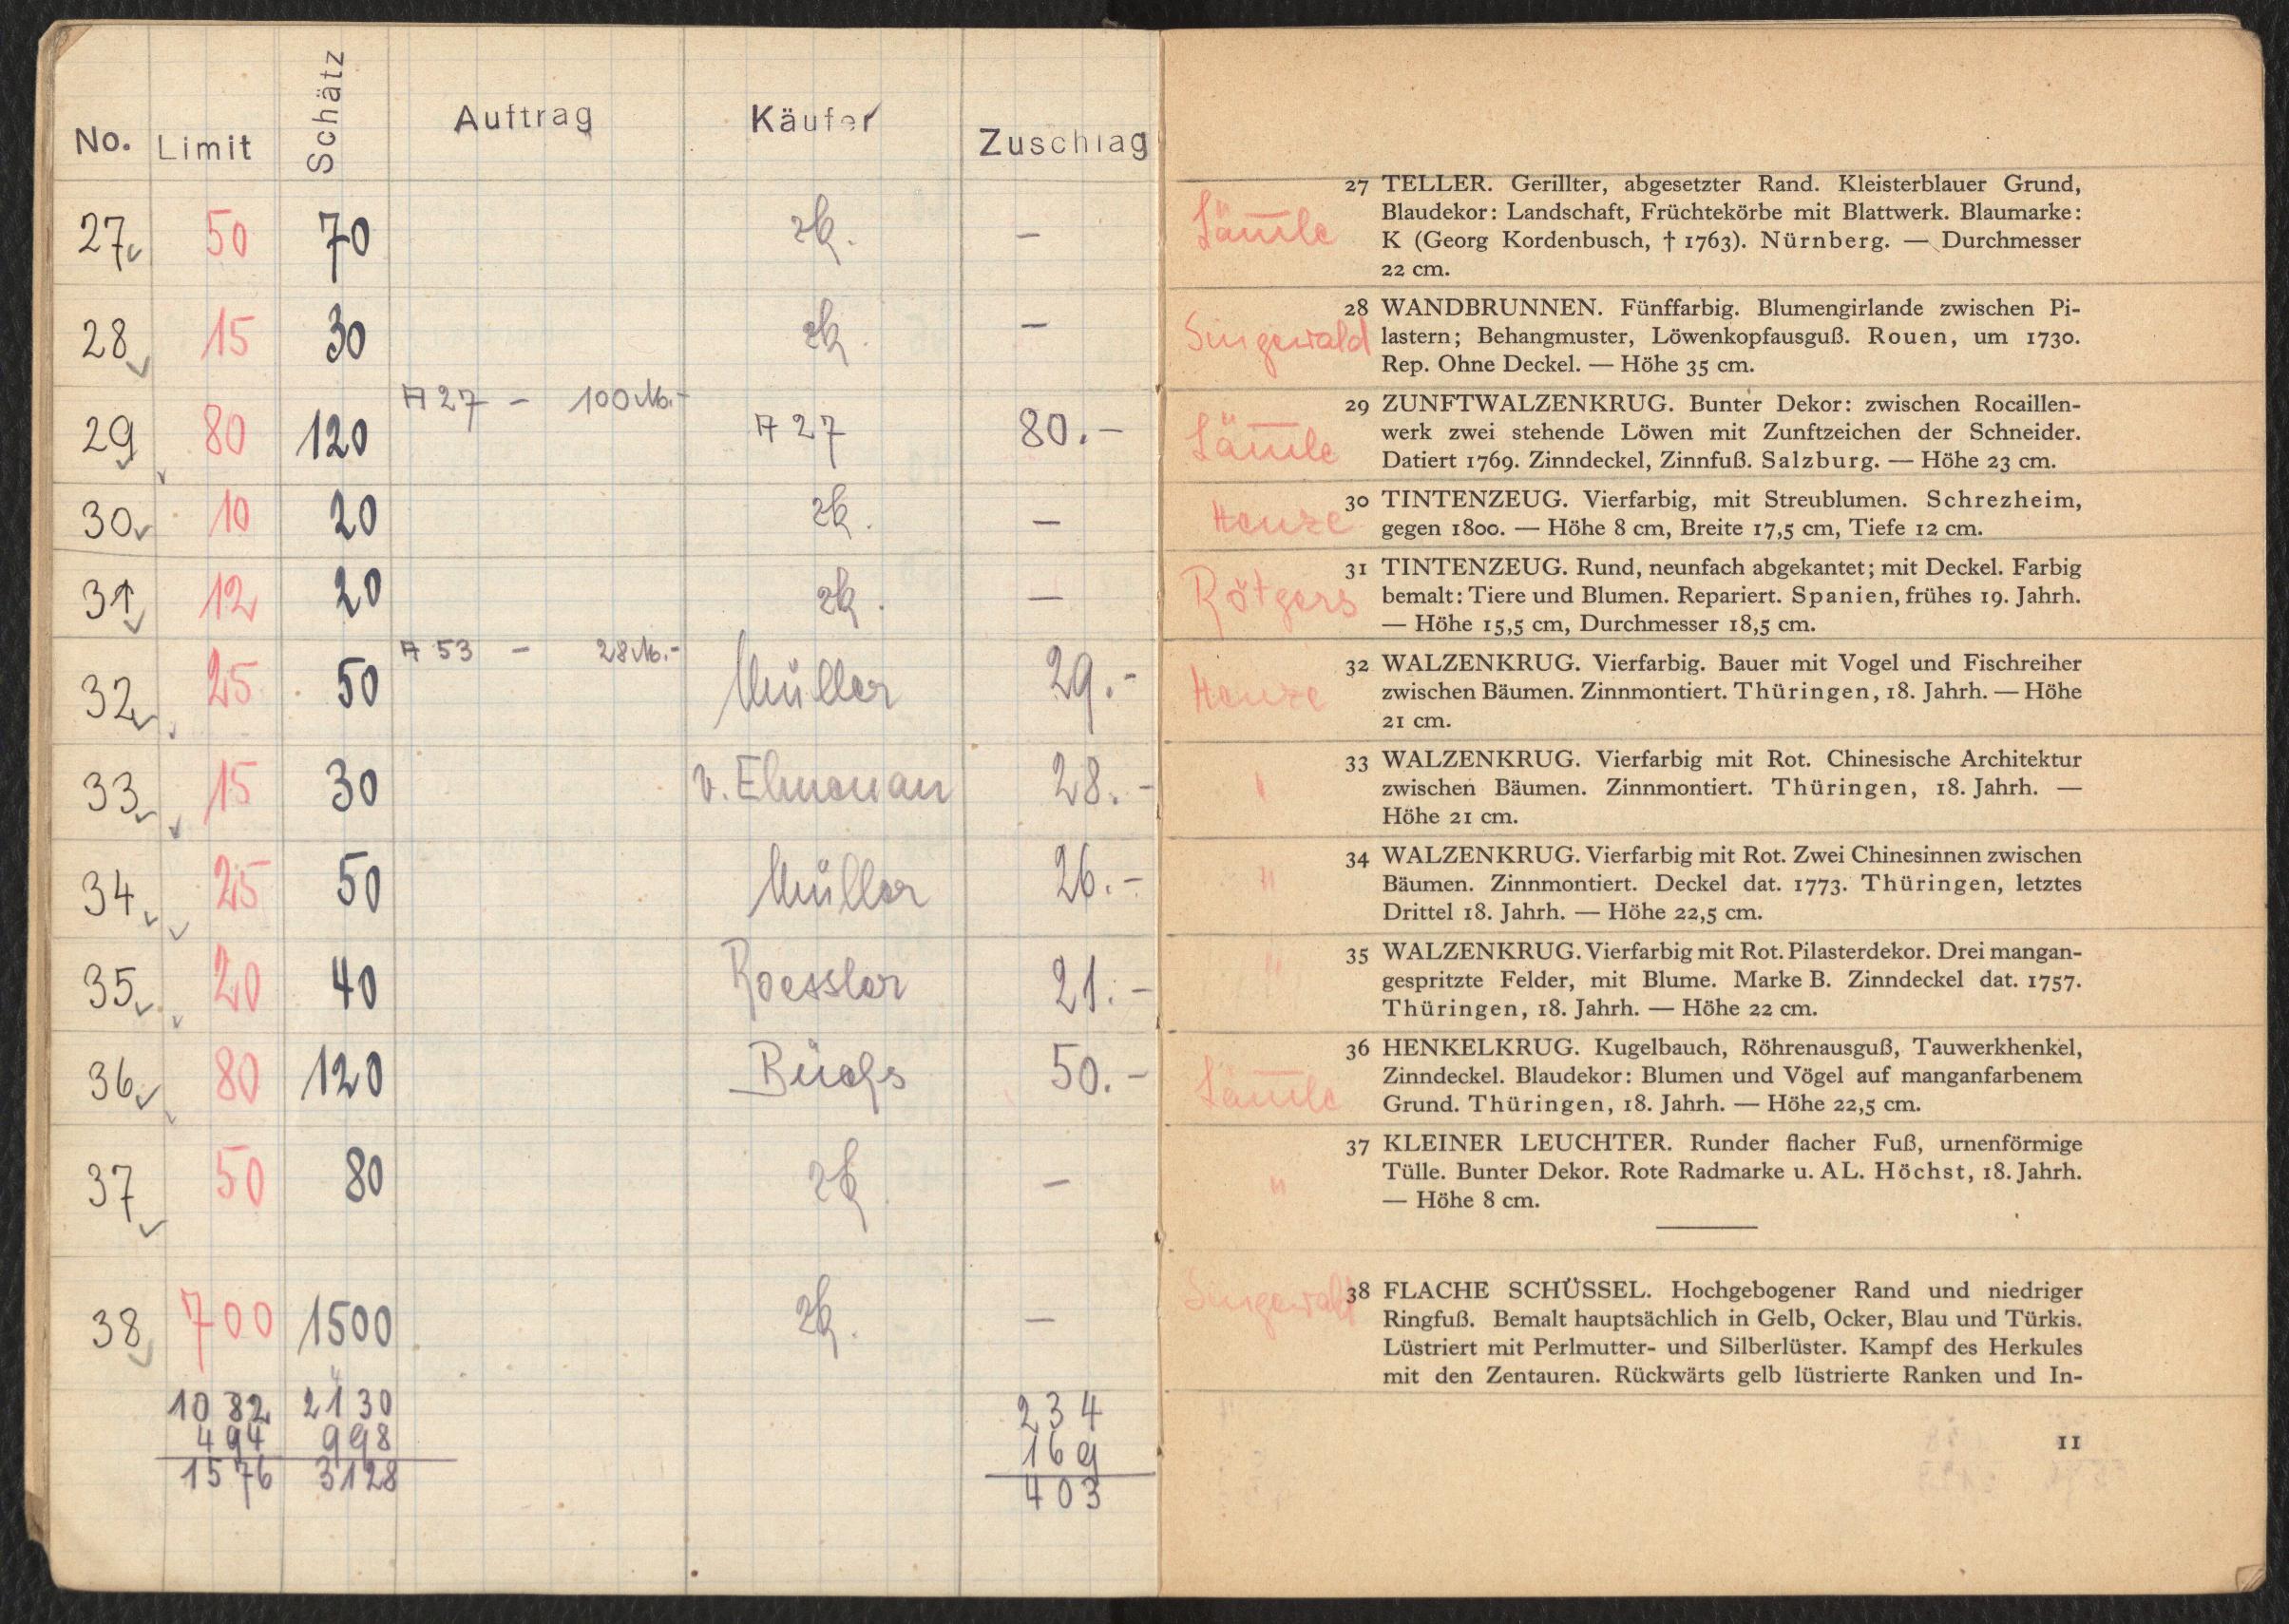 No. Limit Schätz Auftrag Käufer Zuschlag
27 50 70 zk. –
28 15 30 zk. –
A 27 – 100 M.-
29 80 120 A 27 80.-
30 10 20 zk. –
31 12 20 zk. –
A 53 – 28 M.-
32 25 50 Müller 29.-
33 15 30 28.-
34 25 50 Müller 26.-
35 20 40 Roessler 21.-
36 80 120 Büchs 50.-
37 50 80 zk –
38 700 1500 zk. –
1082 2130 234
494 998 169
1576 3128 403
27 TELLER. Gerillter, abgesetzter Rand. Kleisterblauer Grund,
Lämle Blaudekor: Landschaft, Früchtekörbe mit Blattwerk. Blaumarke:
K (Georg Kordenbusch, † 1763). Nürnberg. — Durchmesser
22 cm.
28 WANDBRUNNEN. Fünffarbig. Blumengirlande zwischen Pi-
Singewald lastern; Behangmuster, Löwenkopfausguß. Rouen, um 1730.
Rep. Ohne Deckel. — Höhe 35 cm.
29 ZUNFTWALZENKRUG. Bunter Dekor: zwischen Rocaillen-
Lämle werk zwei stehende Löwen mit Zunftzeichen der Schneider.
Datiert 1769. Zinndeckel, Zinnfuß. Salzburg. — Höhe 23 cm.
30 TINTENZEUG. Vierfarbig, mit Streublumen. Schrezheim,
Henze gegen 1800. — Höhe 8 cm, Breite 17,5 cm, Tiefe 12 cm.
31 TINTENZEUG. Rund, neunfach abgekantet; mit Deckel. Farbig
Rötgers bemalt: Tiere und Blumen. Repariert. Spanien, frühes 19. Jahrh.
— Höhe 15,5 cm, Durchmesser 18,5 cm.
32 WALZENKRUG. Vierfarbig. Bauer mit Vogel und Fischreiher
Henze zwischen Bäumen. Zinnmontiert. Thüringen, 18. Jahrh. — Höhe
21 cm.
33 WALZENKRUG. Vierfarbig mit Rot. Chinesische Architektur
" zwischen Bäumen. Zinnmontiert. Thüringen, 18. Jahrh. —
Höhe 21 cm.
34 WALZENKRUG. Vierfarbig mit Rot. Zwei Chinesinnen zwischen
" Bäumen. Zinnmontiert. Deckel dat. 1773. Thüringen, letztes
Drittel 18. Jahrh. — Höhe 22,5 cm.
35 WALZENKRUG. Vierfarbig mit Rot. Pilasterdekor. Drei mangan-
" gespritzte Felder, mit Blume. Marke B. Zinndeckel dat. 1757.
Thüringen, 18. Jahrh. — Höhe 22 cm.
36 HENKELKRUG. Kugelbauch, Röhrenausguß, Tauwerkhenkel,
Zinndeckel. Blaudekor: Blumen und Vögel auf manganfarbenem
Lämle Grund. Thüringen, 18. Jahrh. — Höhe 22,5 cm.
37 KLEINER LEUCHTER. Runder flacher Fuß, urnenförmige
" Tülle. Bunter Dekor. Rote Radmarke u. AL. Höchst, 18. Jahrh.
— Höhe 8 cm.
Singewald 38 FLACHE SCHÜSSEL. Hochgebogener Rand und niedriger
Ringfuß. Bemalt hauptsächlich in Gelb, Ocker, Blau und Türkis.
Lüstriert mit Perlmutter- und Silberlüster. Kampf des Herkules
mit den Zentauren. Rückwärts gelb lüstrierte Ranken und In-
11